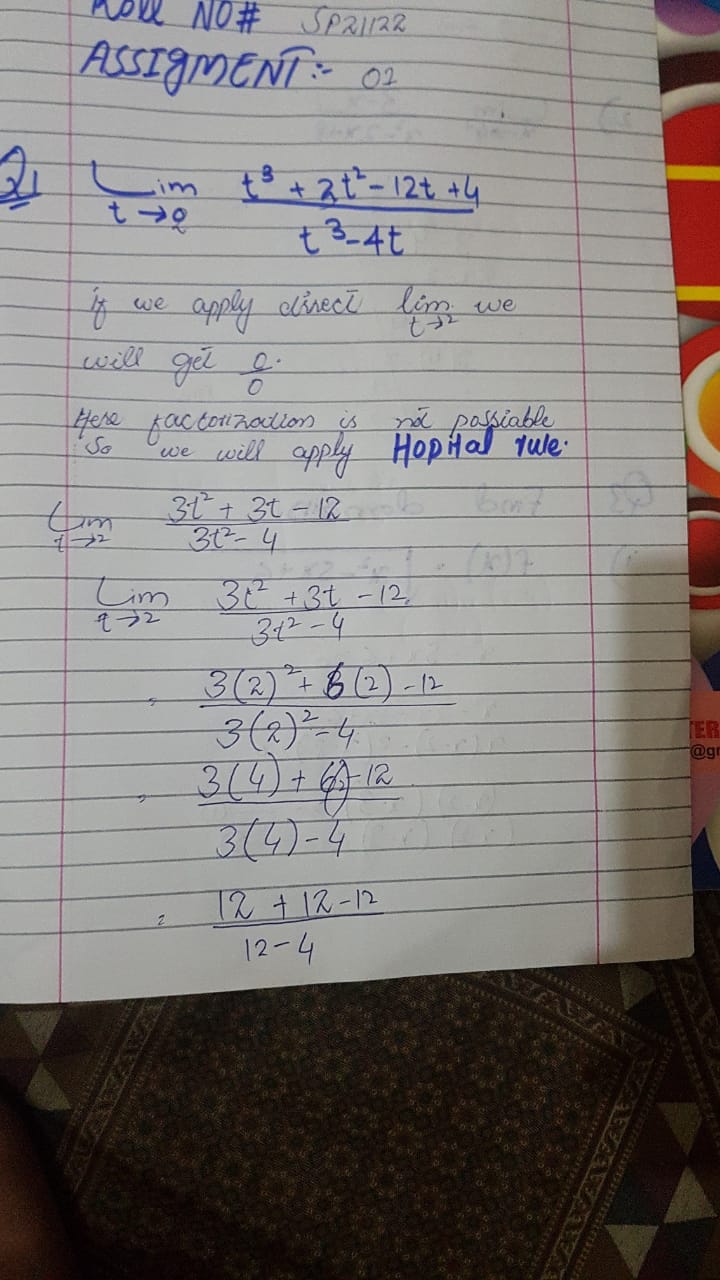 Roll NO# SP21122
ASSIGMENT:- 02
Q1 Lim t→2 t³ + 2t² - 12t + 4 / t³ - 4t
if we apply direct lim t→2 we
will get 0/0.
Here factorization is not possiable
So we will apply Hopital rule.
Lim t→2 3t² + 3t - 12 / 3t² - 4
Lim t→2 3t² + 3t - 12 / 3t² - 4
= 3(2)² + 6(2) - 12 / 3(2)² - 4
= 3(4) + 6(2) - 12 / 3(4) - 4
= 12 + 12 - 12 / 12 - 4
TER
@gr